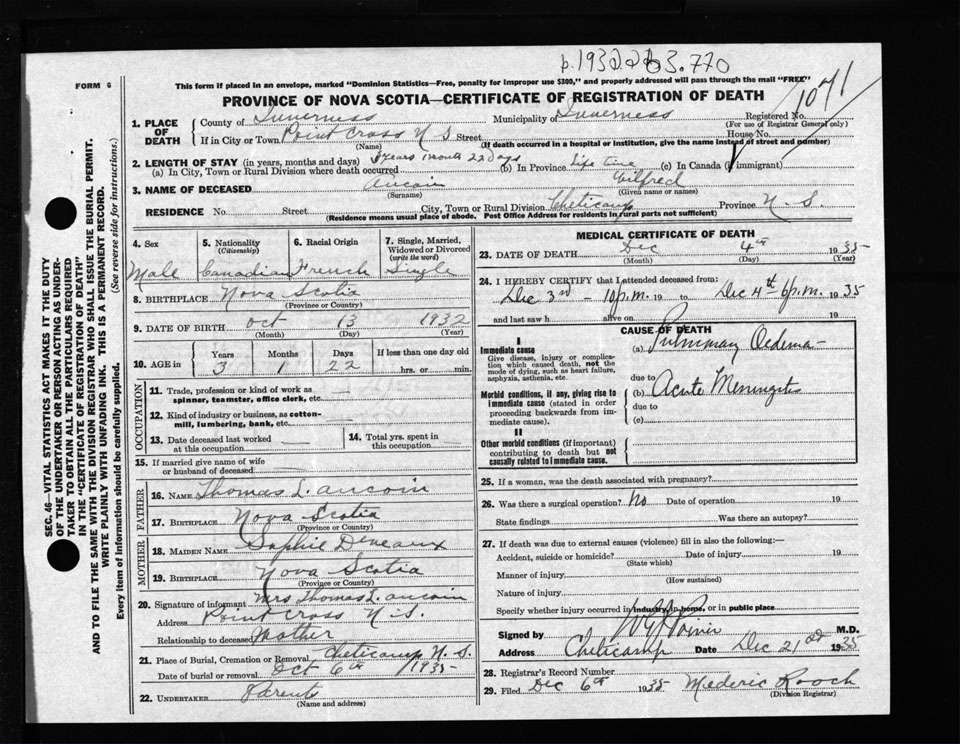 p. 1932 2263.770
FORM 6
This form if placed in an envelope, marked "Dominion Statistics—Free, penalty for improper use $300," and properly addressed will pass through the mail "FREE"
PROVINCE OF NOVA SCOTIA—CERTIFICATE OF REGISTRATION OF DEATH
1. PLACE OF DEATH
County of Inverness
Municipality of Inverness
Registered No. 1071
(For use of Registrar General only)
If in City or Town Point Cross N.S. Street House No.
(Name) (If death occurred in a hospital or institution, give the name instead of street and number)
2. LENGTH OF STAY (in years, months and days) 3 years 1 month 22 Days
(a) In City, Town or Rural Division where death occurred (b) In Province life time (c) In Canada (if immigrant)
3. NAME OF DECEASED Aucoin Wilfred
(Surname) (Given name or names)
RESIDENCE No. Street City, Town or Rural Division Cheticamp Province N.S.
(Residence means usual place of abode. Post Office Address for residents in rural parts not sufficient)
4. Sex
Male
5. Nationality
(Citizenship)
Canadian
6. Racial Origin
French
7. Single, Married, Widowed or Divorced
(write the word)
Single
8. BIRTHPLACE Nova Scotia
(Province or Country)
9. DATE OF BIRTH Oct 13 1932
(Month) (Day) (Year)
10. AGE in Years Months Days If less than one day old
3 1 22 hrs. or min.
OCCUPATION
11. Trade, profession or kind of work as
spinner, teamster, office clerk, etc.
12. Kind of industry or business, as cotton-
mill, lumbering, bank, etc.
13. Date deceased last worked
at this occupation
14. Total yrs. spent in
this occupation
15. If married give name of wife
or husband of deceased
FATHER
16. NAME Thomas L. Aucoin
17. BIRTHPLACE Nova Scotia
(Province or Country)
MOTHER
18. MAIDEN NAME Sophie Deveaux
19. BIRTHPLACE Nova Scotia
(Province or Country)
20. Signature of informant Mrs Thomas L. Aucoin
Address Point Cross N.S.
Relationship to deceased Mother
21. Place of Burial, Cremation or Removal Cheticamp N.S.
Date of burial or removal Oct 6th 1935
22. UNDERTAKER Parents
(Name and address)
MEDICAL CERTIFICATE OF DEATH
23. DATE OF DEATH Dec 4th 1935
(Month) (Day) (Year)
24. I HEREBY CERTIFY that I attended deceased from:
Dec 3rd - 10 p.m. 19 to Dec 4th 6 p.m. 1935
and last saw h alive on 19
CAUSE OF DEATH
I
Immediate cause
Give disease, injury or complica-
tion which caused death, not the
mode of dying, such as heart failure,
asphyxia, asthenia, etc.
(a) Pulmonary Oedema
due to
Morbid conditions, if any, giving rise to
immediate cause (stated in order
proceeding backwards from im-
mediate cause).
(b) Acute Meningitis
due to
(c)
II
Other morbid conditions (if important)
contributing to death but not
causally related to immediate cause.
25. If a woman, was the death associated with pregnancy?
26. Was there a surgical operation? No Date of operation 19
State findings Was there an autopsy?
27. If death was due to external causes (violence) fill in also the following:—
Accident, suicide or homicide? Date of injury 19
(State which)
Manner of injury
(How sustained)
Nature of injury
Specify whether injury occurred in industry, in home, or in public place
Signed by Poirier M.D.
Address Cheticamp Date Dec 21 1935
28. Registrar's Record Number
29. Filed Dec 6th 1935 Mederic Roach
(Division Registrar)
SEC. 46—VITAL STATISTICS ACT MAKES IT THE DUTY
OF THE UNDERTAKER OR PERSON ACTING AS UNDER-
TAKER TO OBTAIN ALL THE PARTICULARS REQUIRED
IN THE "CERTIFICATE OF REGISTRATION OF DEATH"
AND TO FILE THE SAME WITH THE DIVISION REGISTRAR WHO SHALL ISSUE THE BURIAL PERMIT.
WRITE PLAINLY WITH UNFADING INK. THIS IS A PERMANENT RECORD.
Every item of information should be carefully supplied. (See reverse side for instructions.)